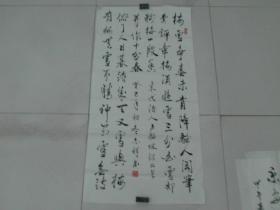 梅雪争春未肯降骚人阁笔
费评章梅须逊雪三分白雪却
输梅一段香 宋代诗人卢梅坡
有梅无雪不精神有雪无诗
俗了人日暮诗成天又雪与梅
并作十分春